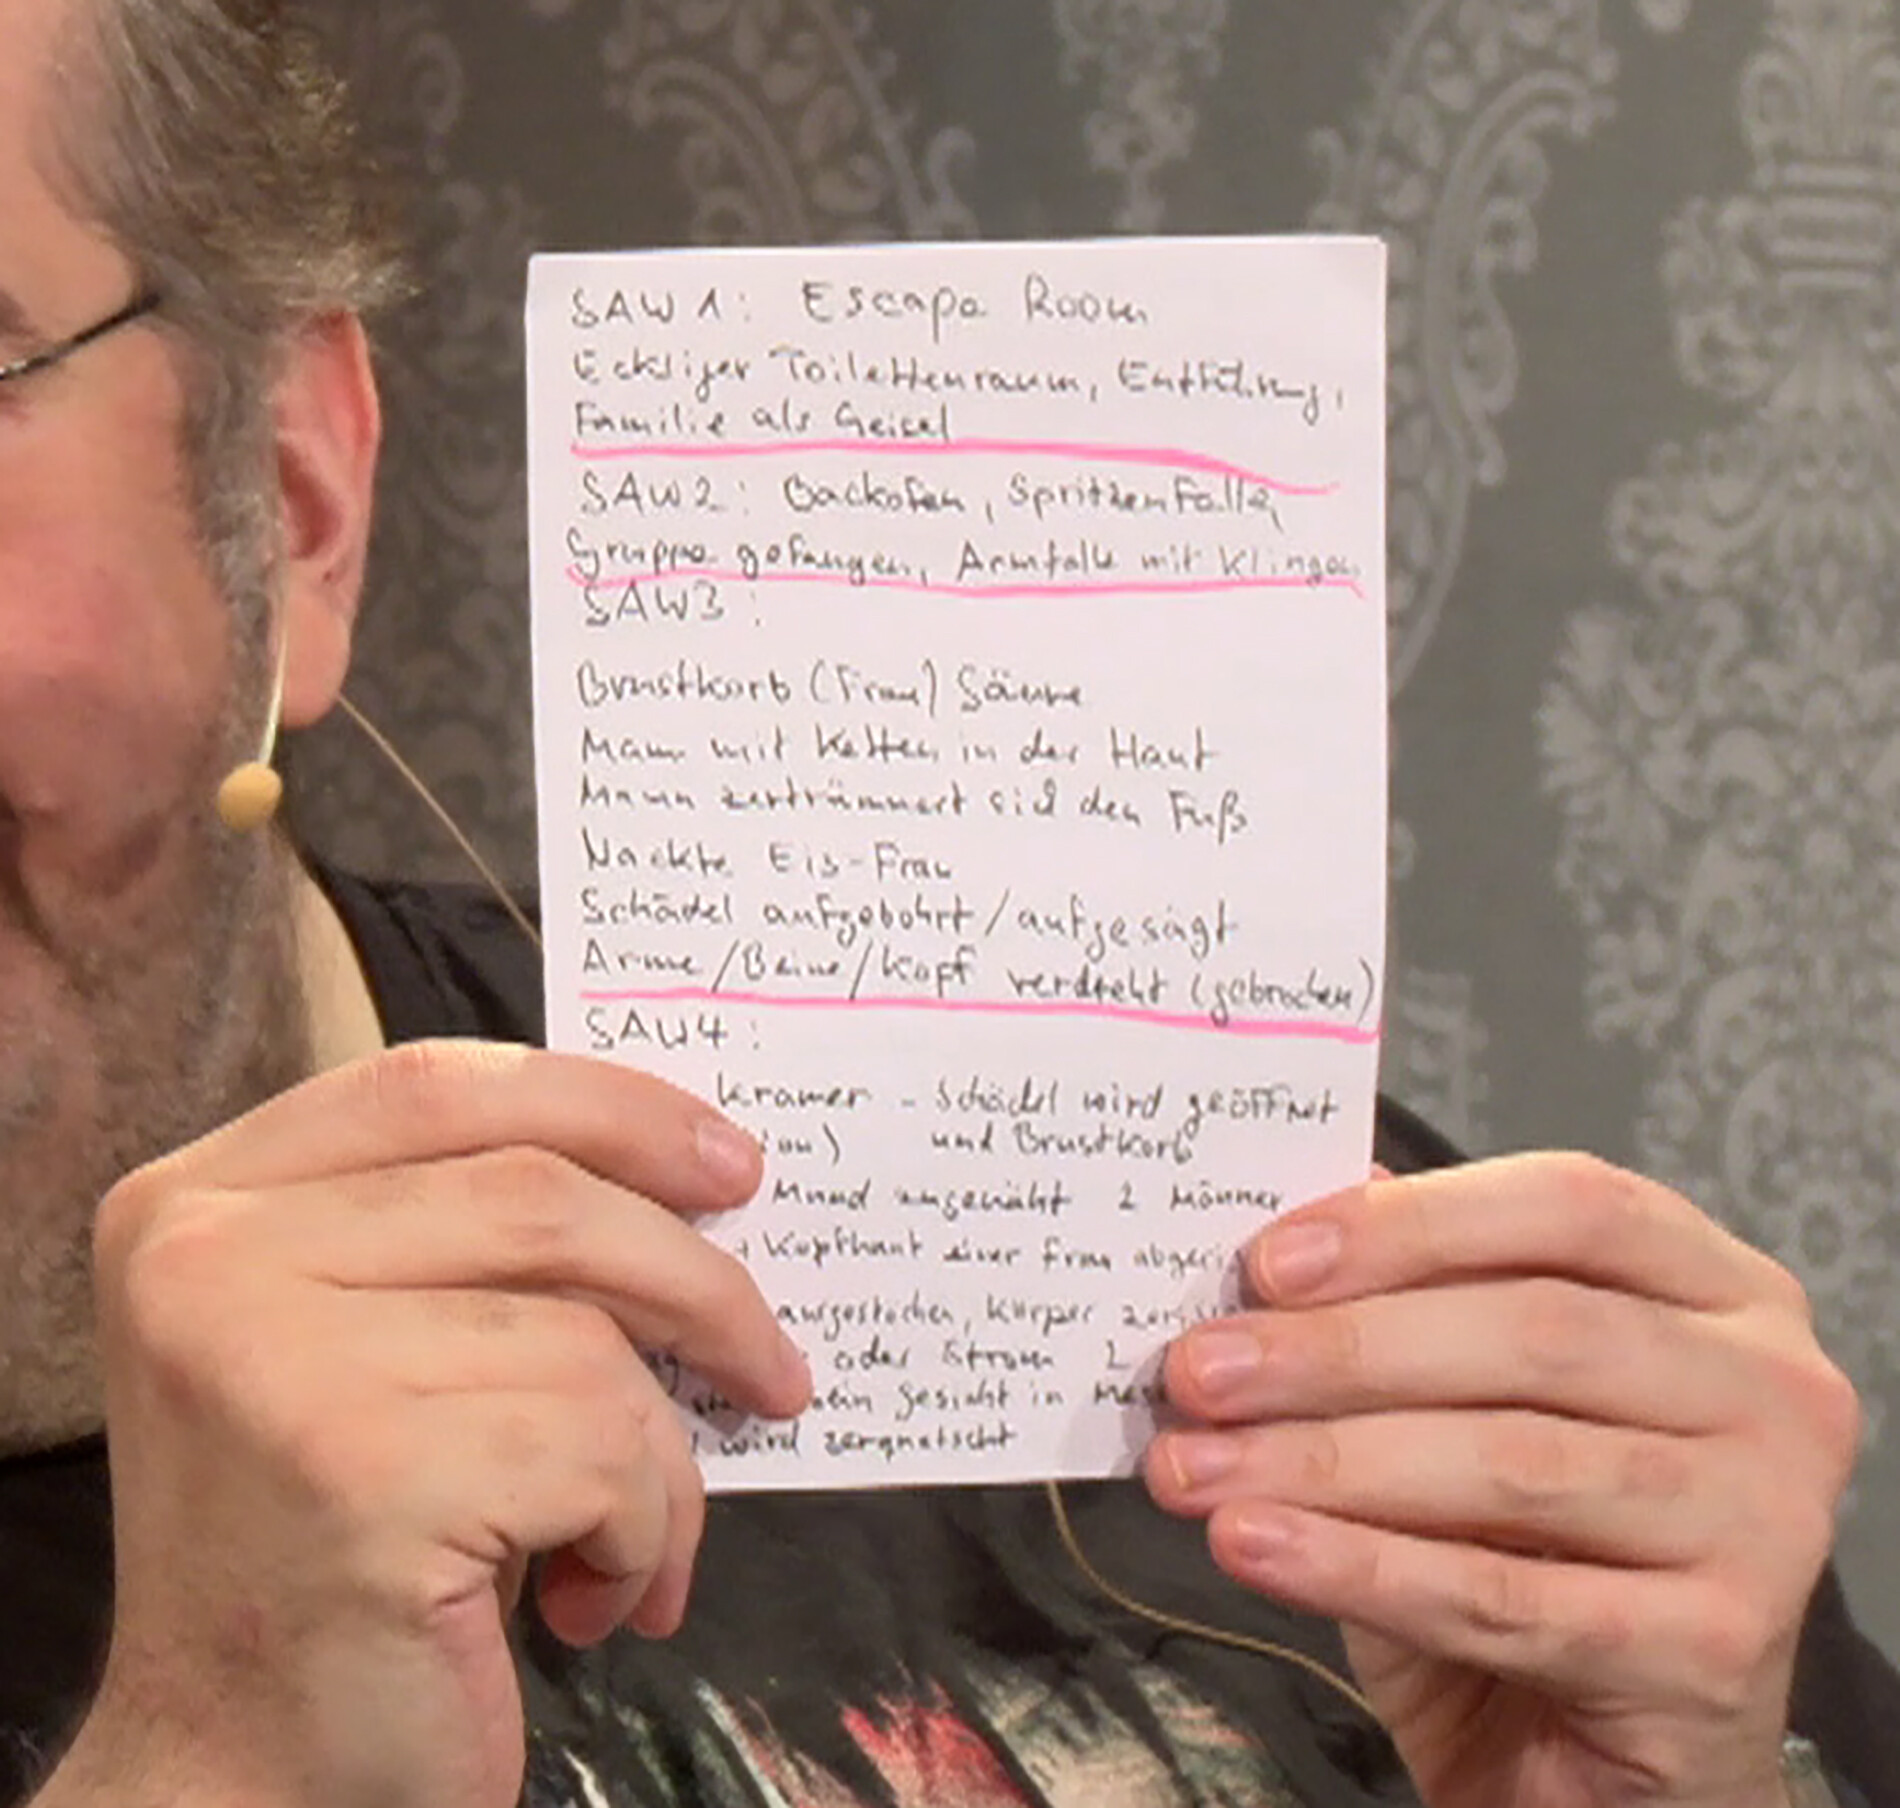 SAW 1: Escape Room
Eckliger Toilettenraum, Entführung,
Familie als Geisel
SAW2: Backofen, Spritzenfalle,
Gruppe gefangen, Armfalle mit Klingen
SAW3:
Brustkorb (Frau) Säure
Mann mit Ketten in der Haut
Mann zertrümmert sich den Fuß
Nackte Eis-Frau
Schädel aufgebohrt/aufgesägt
Arme/Beine/Kopf verdreht (gebrochen)
SAW4:
Kramer - Schädel wird geöffnet
und Brustkorb
Mund zugenäht 2 Männer
+ Kopfhaut einer Frau
ausgestochen, Körper
oder Strom 2
Gesicht in
wird zerquetscht